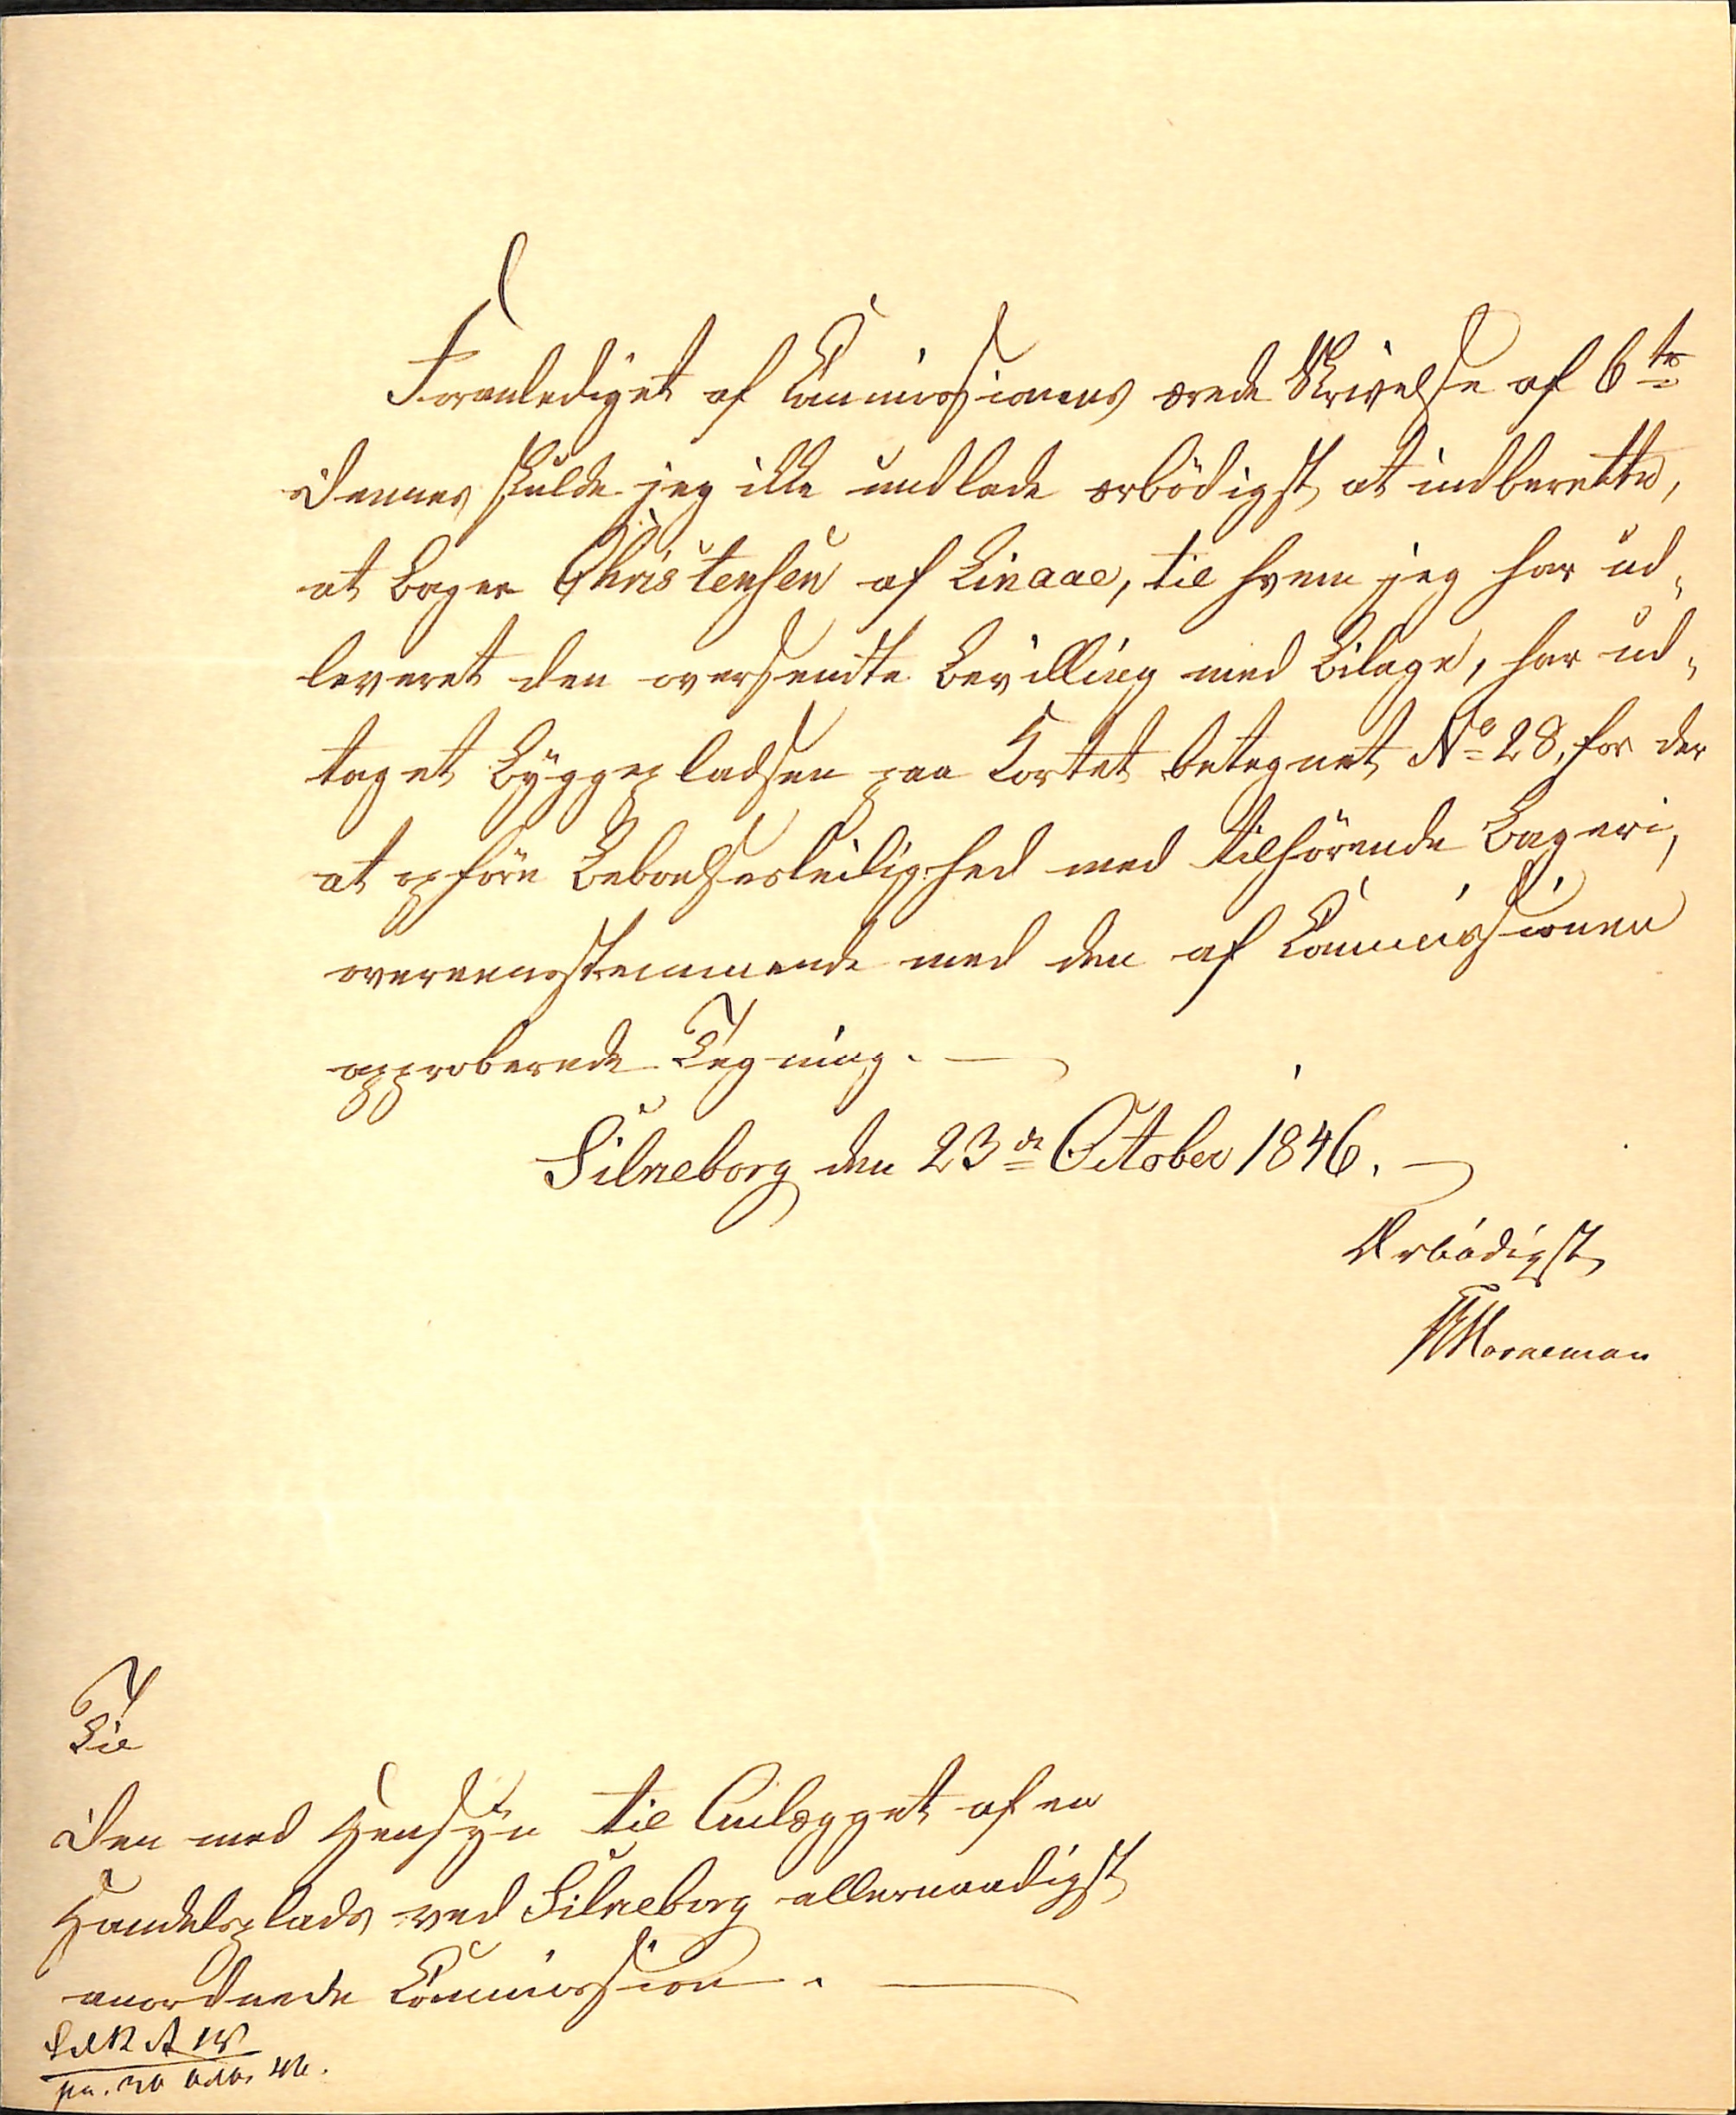 Foranlediget af Commissionens ærede Skrivelse af 6te
dennes skulde jeg ikke undlade ærbödigst at indberette,
at Bager Christensen af Linaae, til hvem jeg har ud-
leveret den oversendte Bevilling med Bilage, har ud-
taget Byggepladsen paa Kortet betegnet No 28, for der
at opföre Beboelsesleilighed med tilhörende Bageri,
overeensstemmende med den af Commissionen
approberede Tegning. —
Silkeborg den 23de October 1846. —
Ærbödigst
Horneman
Til
Den med Hensyn til Anlægget af en
Handelsplads ved Silkeborg allernaadigst
anordnede Commission. —
46.